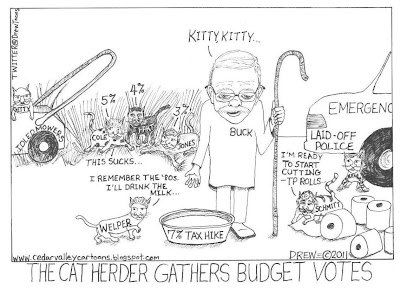 TWITTER@DrewTmans
KITTY, KITTY...
GETTY
IDLED MOWERS
5%
4%
3%
COLE
JONES
THIS SUCKS...
BUCK
EMERGENC
LAID-OFF
POLICE
I REMEMBER THE '80s.
I'LL DRINK THE
MILK...
WELPER
7% TAX HIKE
I'M READY
TO START
CUTTING
-TP ROLLS
SCHMITT
www.cedarvalleycartoons.blogspot.com
DREW ©2011
THE CAT HERDER GATHERS BUDGET VOTES